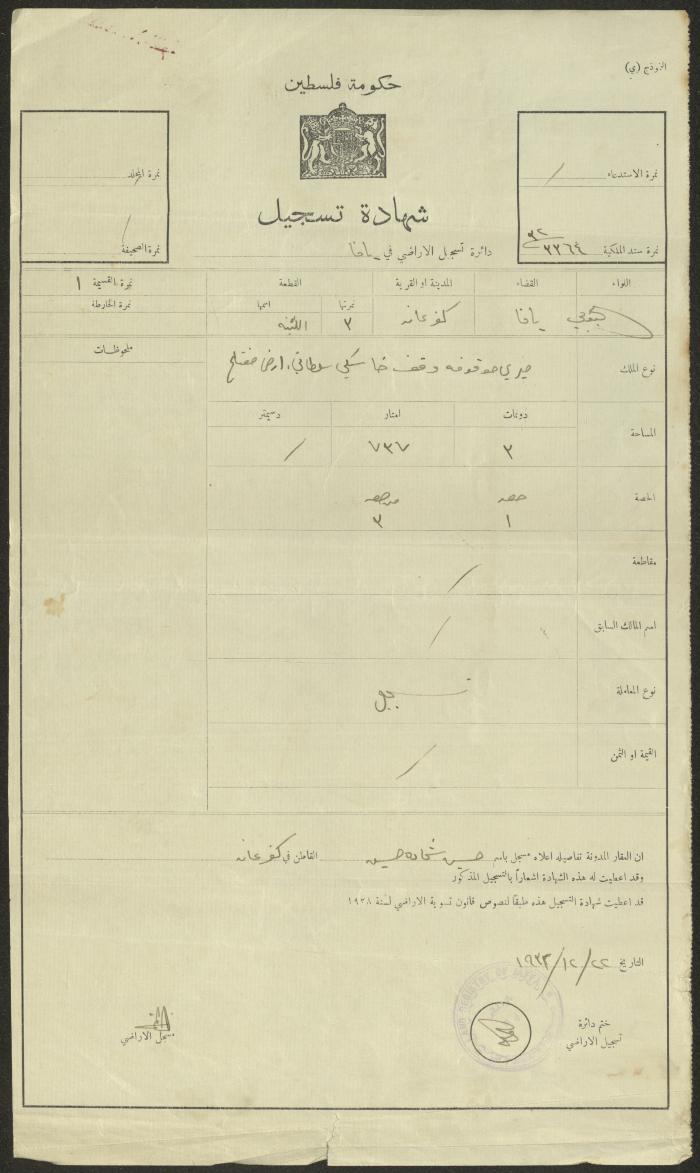 النموذج (ي)
حكومة فلسطين
شهادة تسجيل
دائرة تسجيل الاراضي في يافا
نمرة الاستدعاء /
نمرة سند الملكية ٣٣٦٤
نمرة المجلد
نمرة الصحيفة /
اللواء القضاء المدينة او القرية القطعة نمرة القسيمة ١
نمرتها اسمها نمرة الخارطة
جنوبي يافا كفرعانه ٣
ملحوظات
نوع الملك ميري موقوفه وقف خاسكي سلطان، ارض مفتلح
دونمات امتار دسيمتر
المساحة ٣ ٧٣٧ /
الحصة حصه من حصه
١ ٣
مقاطعة /
اسم المالك السابق /
نوع المعاملة تسجيل
القيمة او الثمن /
ان العقار المدونة تفاصيله اعلاه مسجل باسم حسين شحاده حسين القاطن في كفرعانه
وقد اعطيت له هذه الشهادة اشعاراً بالتسجيل المذكور
قد اعطيت شهادة التسجيل هذه طبقاً لنصوص قانون تسوية الاراضي لسنة ١٩٢٨
التاريخ ٢٢/١٢/١٩٣٢
ختم دائرة
تسجيل الاراضي
مسجل الاراضي
LAND REGISTRY OF JAFFA